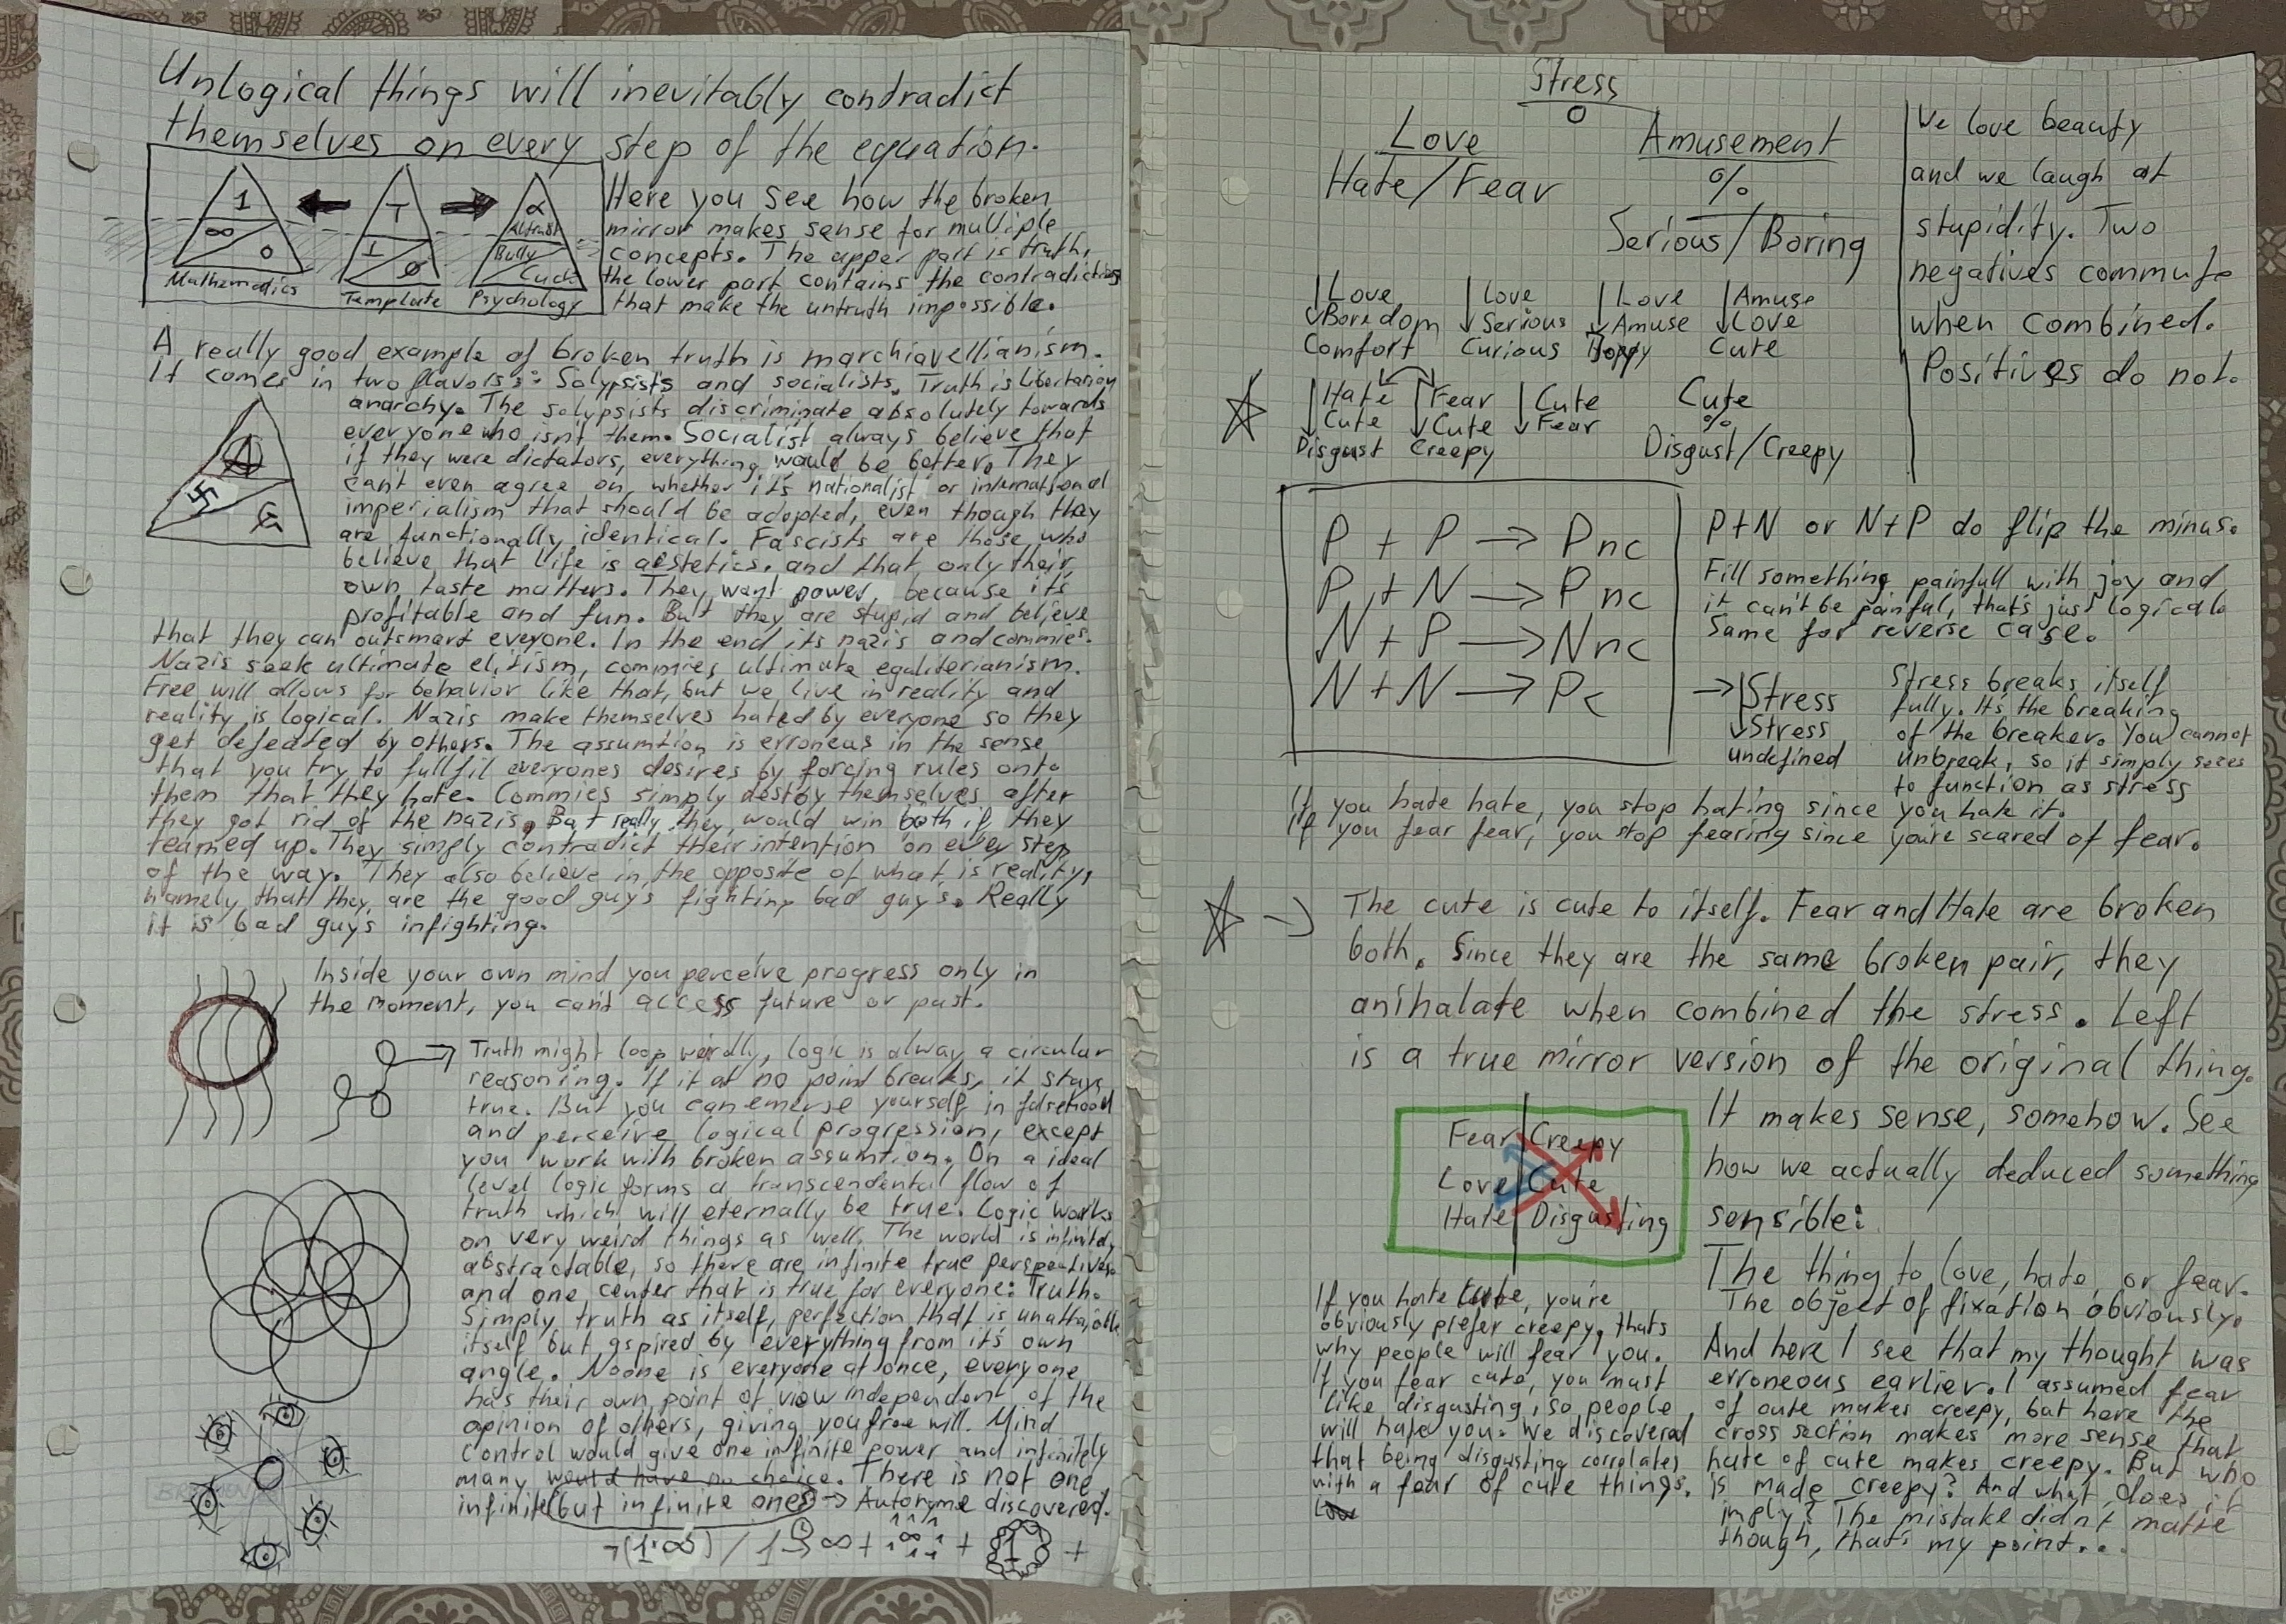 Unlogical things will inevitably contradict
themselves on every step of the equation.
1
∞
0
Mathematics
T
1
0
Template
α
Altruist
Bully
Cuck
Psychology
Here you see how the broken
mirror makes sense for multiple
concepts. The upper part is truth,
the lower part contains the contradictions
that make the untruth impossible.
A really good example of broken truth is marchiavellianism.
It comes in two flavors: Solypsists and socialists. Truth is libertarian
anarchy. The solypsists discriminate absolutely towards
everyone who isn't them. Socialist always believe that
if they were dictators, everything would be better. They
can't even agree on whether it's nationalist or international
imperialism that should be adopted, even though they
are functionally identical. Fascists are those who
believe that life is aestetics. and that only their
own taste matters. They want power, because it's
profitable and fun. But they are stupid and believe
that they can outsmart everyone. In the end its nazis and commies.
Nazis seek ultimate elitism, commies ultimate egaliterianism.
Free will allows for behavior like that, but we live in reality and
reality is logical. Nazis make themselves hated by everyone so they
get defeated by others. The assumtion is erroneas in the sense
that you try to fullfil everyones desires by forcing rules onto
them that they hate. Commies simply destoy themselves after
they got rid of the nazis. But really they would win both if they
teamed up. They simply contradict their intention on every step
of the way. They also believe in the opposite of what is reality,
namely that they are the good guys fighting bad guys. Really
it is bad guys infighting.
Inside your own mind you perceive progress only in
the moment, you can't access future or past.
Truth might loop weirdly, logic is alway a circular
reasoning. If it at no point breaks, it stays
true. But you can emerse yourself in falsehood
and perceive logical progression, except
you work with broken assumtion. On a ideal
level logic forms a transcendental flow of
truth which will eternally be true. Logic works
on very weird things as well. The world is infinitely
abstractable, so there are infinite true perspectives
and one center that is true for everyone: Truth.
Simply truth as itself, perfection that is unattainable
itself but aspired by everything from it's own
angle. Noone is everyone at once, everyone
has their own point of view independent of the
opinion of others, giving you free will. Mind
control would give one infinite power and infinitely
many would have no choice. There is not one
infinite (but infinite ones) → Autonyme discovered.
¬(1·∞) / 1 ∞ + ∞ + 1 +
Stress
0
Love
Hate/Fear
Amusement
%
Serious/Boring
We love beauty
and we laugh at
stupidity. Two
negatives commute
when combined.
Positives do not.
↓Love Boredom Comfort
↓Love Serious Curious
↓Love Amuse Happy
↓Amuse Love Cute
↓Hate Cute Disgust
↓Fear Cute Creepy
↓Cute Fear
Cute
%
Disgust/Creepy
P + P → Pnc
P + N → Pnc
N + P → Nnc
N + N → Pc
P+N or N+P do flip the minus.
Fill something painfull with joy and
it can't be painful, that's just logical.
Same for reverse case.
→ ↓Stress
Stress
undefined
Stress breaks itself
fully. It's the breaking
of the breaker. You cannot
unbreak, so it simply seces
to function as stress
If you hate hate, you stop hating since you hate it.
If you fear fear, you stop fearing since you're scared of fear.
→ The cute is cute to itself. Fear and Hate are broken
both. Since they are the same broken pair, they
anihalate when combined the stress. Left
is a true mirror version of the original thing.
Fear Creepy
Love Cute
Hate Disgusting
It makes sense, somehow. See
how we actually deduced something
sensible:
The thing to love, hate, or fear.
The object of fixation obviously.
And here I see that my thought was
erroneous earlier. I assumed fear
of cute makes creepy, but here the
cross section makes more sense that
hate of cute makes creepy. But who
is made creepy? And what does it
imply? The mistake didn't matte
though, that's my point...
If you hate cute, you're
obviously prefer creepy, thats
why people will fear you.
If you fear cute, you must
like disgusting, so people
will hate you. We discovered
that being disgusting correlates
with a fear of cute things.
Love